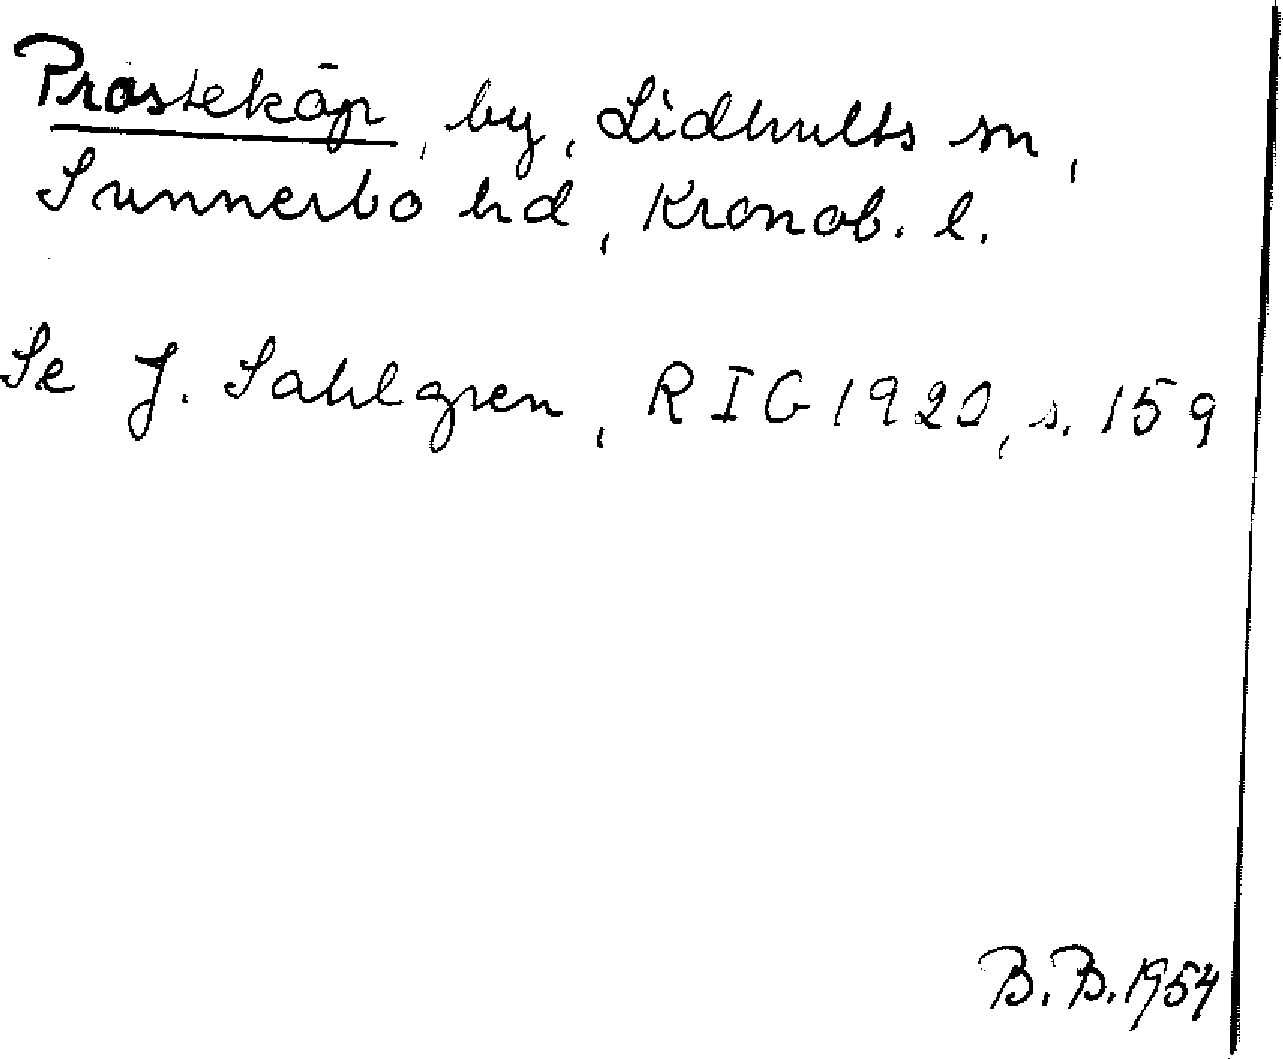 Prästeköp, by, Lidhults sn,
Sunnerbo hd, Kronob. l.
Se J. Sahlgren, RIG 1920, s. 159
B. B. 1954